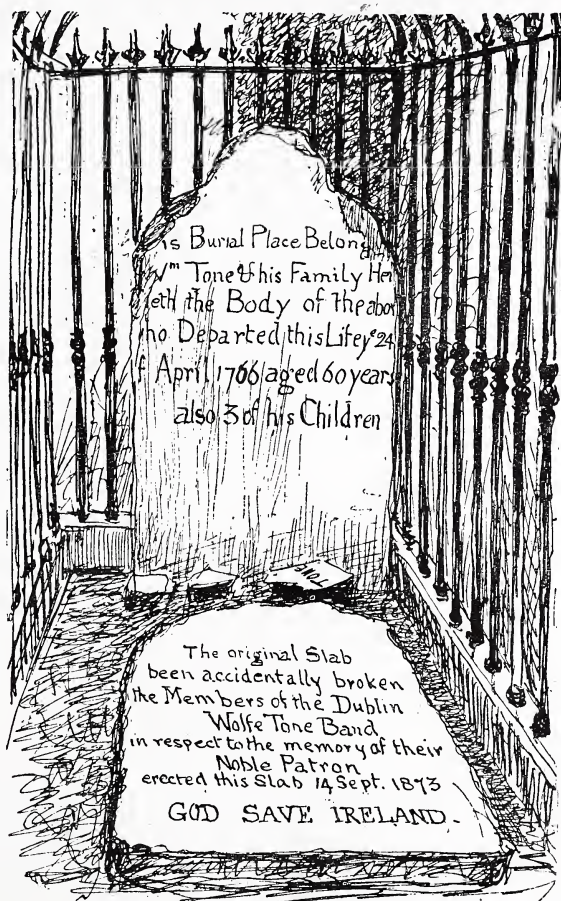 is Burial Place Belong
Wm Tone & his Family Her
eth the Body of The abov
ho Departed this Life ye 24
f April 1766 aged 60 years
also 3 of his Children
TONE
The original Slab
been accidentally broken
the Members of the Dublin
Wolfe Tone Band
in respect to the memory of their
Noble Patron
erected this Slab 14 Sept. 1873
GOD SAVE IRELAND.